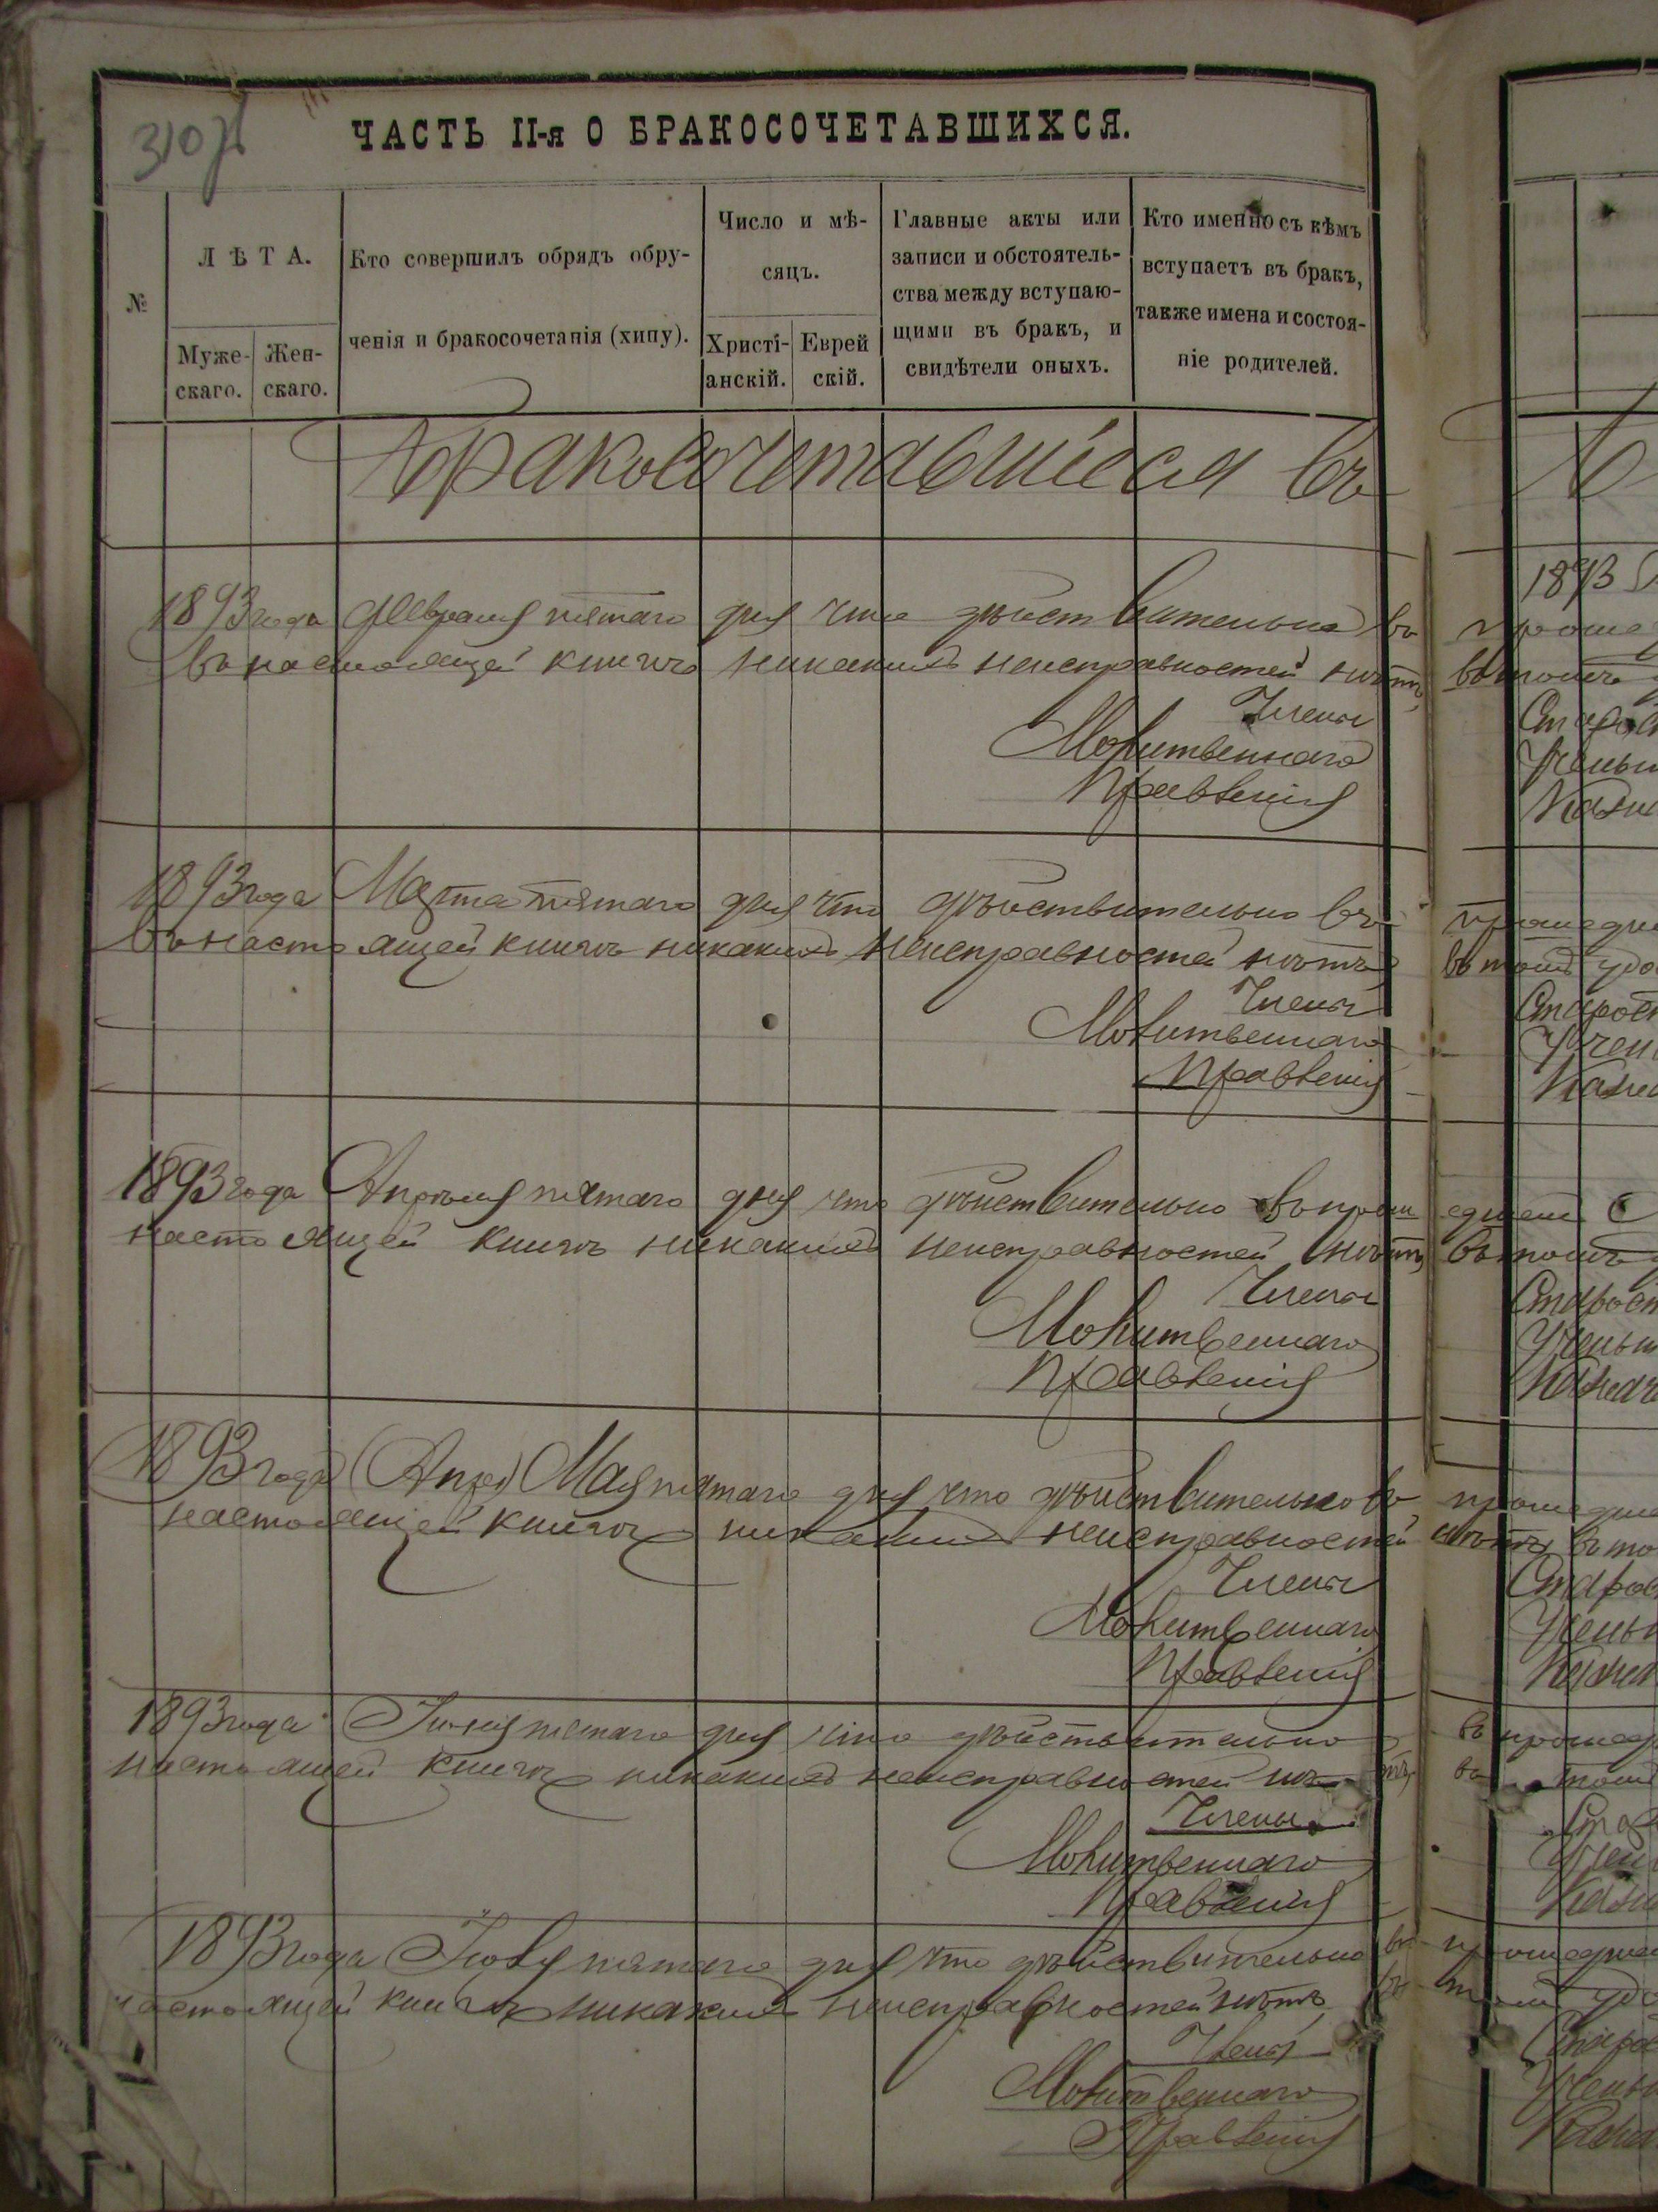 310 об
ЧАСТЬ II-я О БРАКОСОЧЕТАВШИХСЯ.
№
ЛѢТА.
Муже-
скаго.
Жен-
скаго.
Кто совершилъ обрядъ обру-
ченія и бракосочетанія (хипу).
Число и мѣ-
сяцъ.
Христі-
анскій.
Еврей
скій.
Главные акты или
записи и обстоятель-
ства между вступаю-
щими въ бракъ, и
свидѣтели оныхъ.
Кто именно съ кѣмъ
вступаетъ въ бракъ,
также имена и состоя-
ніе родителей.
Бракосочетавшіеся въ
1893 года Февраля пятаго дня что дѣйствительно въ
въ настоящей книгѣ никакихъ неисправностей нѣтъ
Члены
Молитвеннаго
Правленія
1893 года Марта пятаго дня что дѣйствительно въ
въ настоящей книгѣ никакихъ неисправностей нѣтъ
Члены
Молитвеннаго
Правленія
1893 года Апрѣля пятаго дня что дѣйствительно въ прош едшемъ
настоящей книгѣ никакихъ неисправностей нѣтъ въ томъ
Члены
Молитвеннаго
Правленія
1893 года (Апрѣ) Мая пятаго дня что дѣйствительно въ
настоящей книгѣ никакихъ неисправностей нѣтъ въ то
Члены
Молитвеннаго
Правленія
1893 года Іюня пятаго дня что дѣйствительно
настоящей книгѣ никакихъ неисправностей нѣтъ
Члены
Молитвеннаго
Правленія
1893 года Іюля пятаго дня что дѣйствительно въ
настоящей книгѣ никакихъ неисправностей нѣтъ
Члены
Молитвеннаго
Правленія
1893